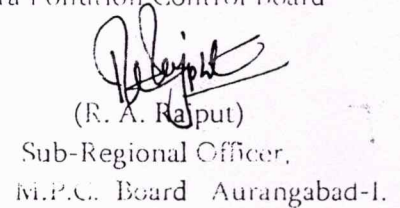 Pollution Control Board
(R. A. Rajput)
Sub-Regional Officer,
M.P.C. Board Aurangabad-I.